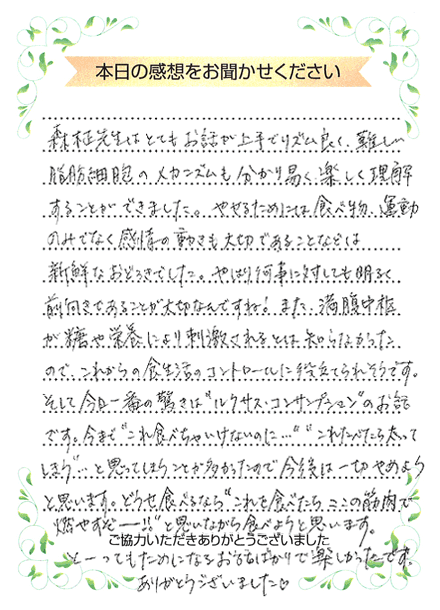 本日の感想をお聞かせください
森拓先生はとてもお話が上手でリズム良く、難しい
脂肪細胞のメカニズムも分かり易く、楽しく理解
することができました。やせるためには食べ物、運動
のみでなく感情の動きも大切であることなどは
新鮮なおどろきでした。やはり何事に対しても明るく
前向きであることが大切なんですね！また、満腹中枢
が糖や栄養により刺激されるとは知らなかった
ので、これからの食生活のコントロールに役立てられそうです。
そして今日一番の驚きは"ルクサス・コンサンプション"のお話
です。今まで"これ食べちゃいけないのに…""これたべたら太って
しまう"…と思ってしまうことが多かったので今後は一切やめよう
と思います。どうせ食べるなら"これを食べたら、ここの筋肉で
燃やすぞー!!"と思いながら食べようと思います。
ご協力いただきありがとうございました
とーってもためになるお話ばかりで楽しかったです。
ありがとうございました♡